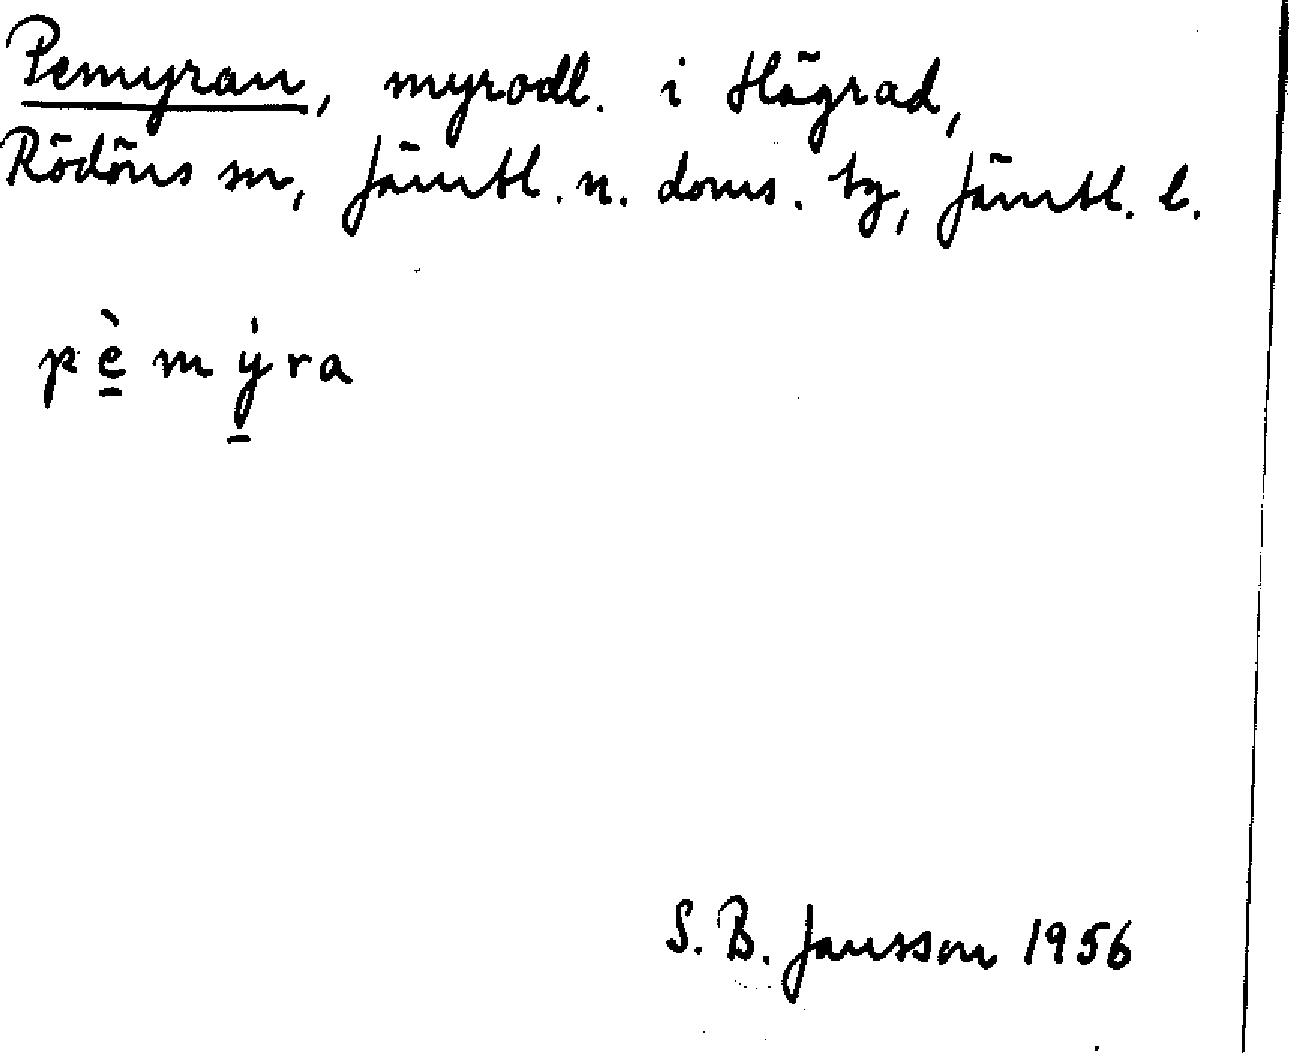 Pemyran, myrodl. i Högrad,
Rödöns sn, Jämtl. n. doms. tg, Jämtl. l.
pè̠mẏ̠ra
S. B. Jansson 1956